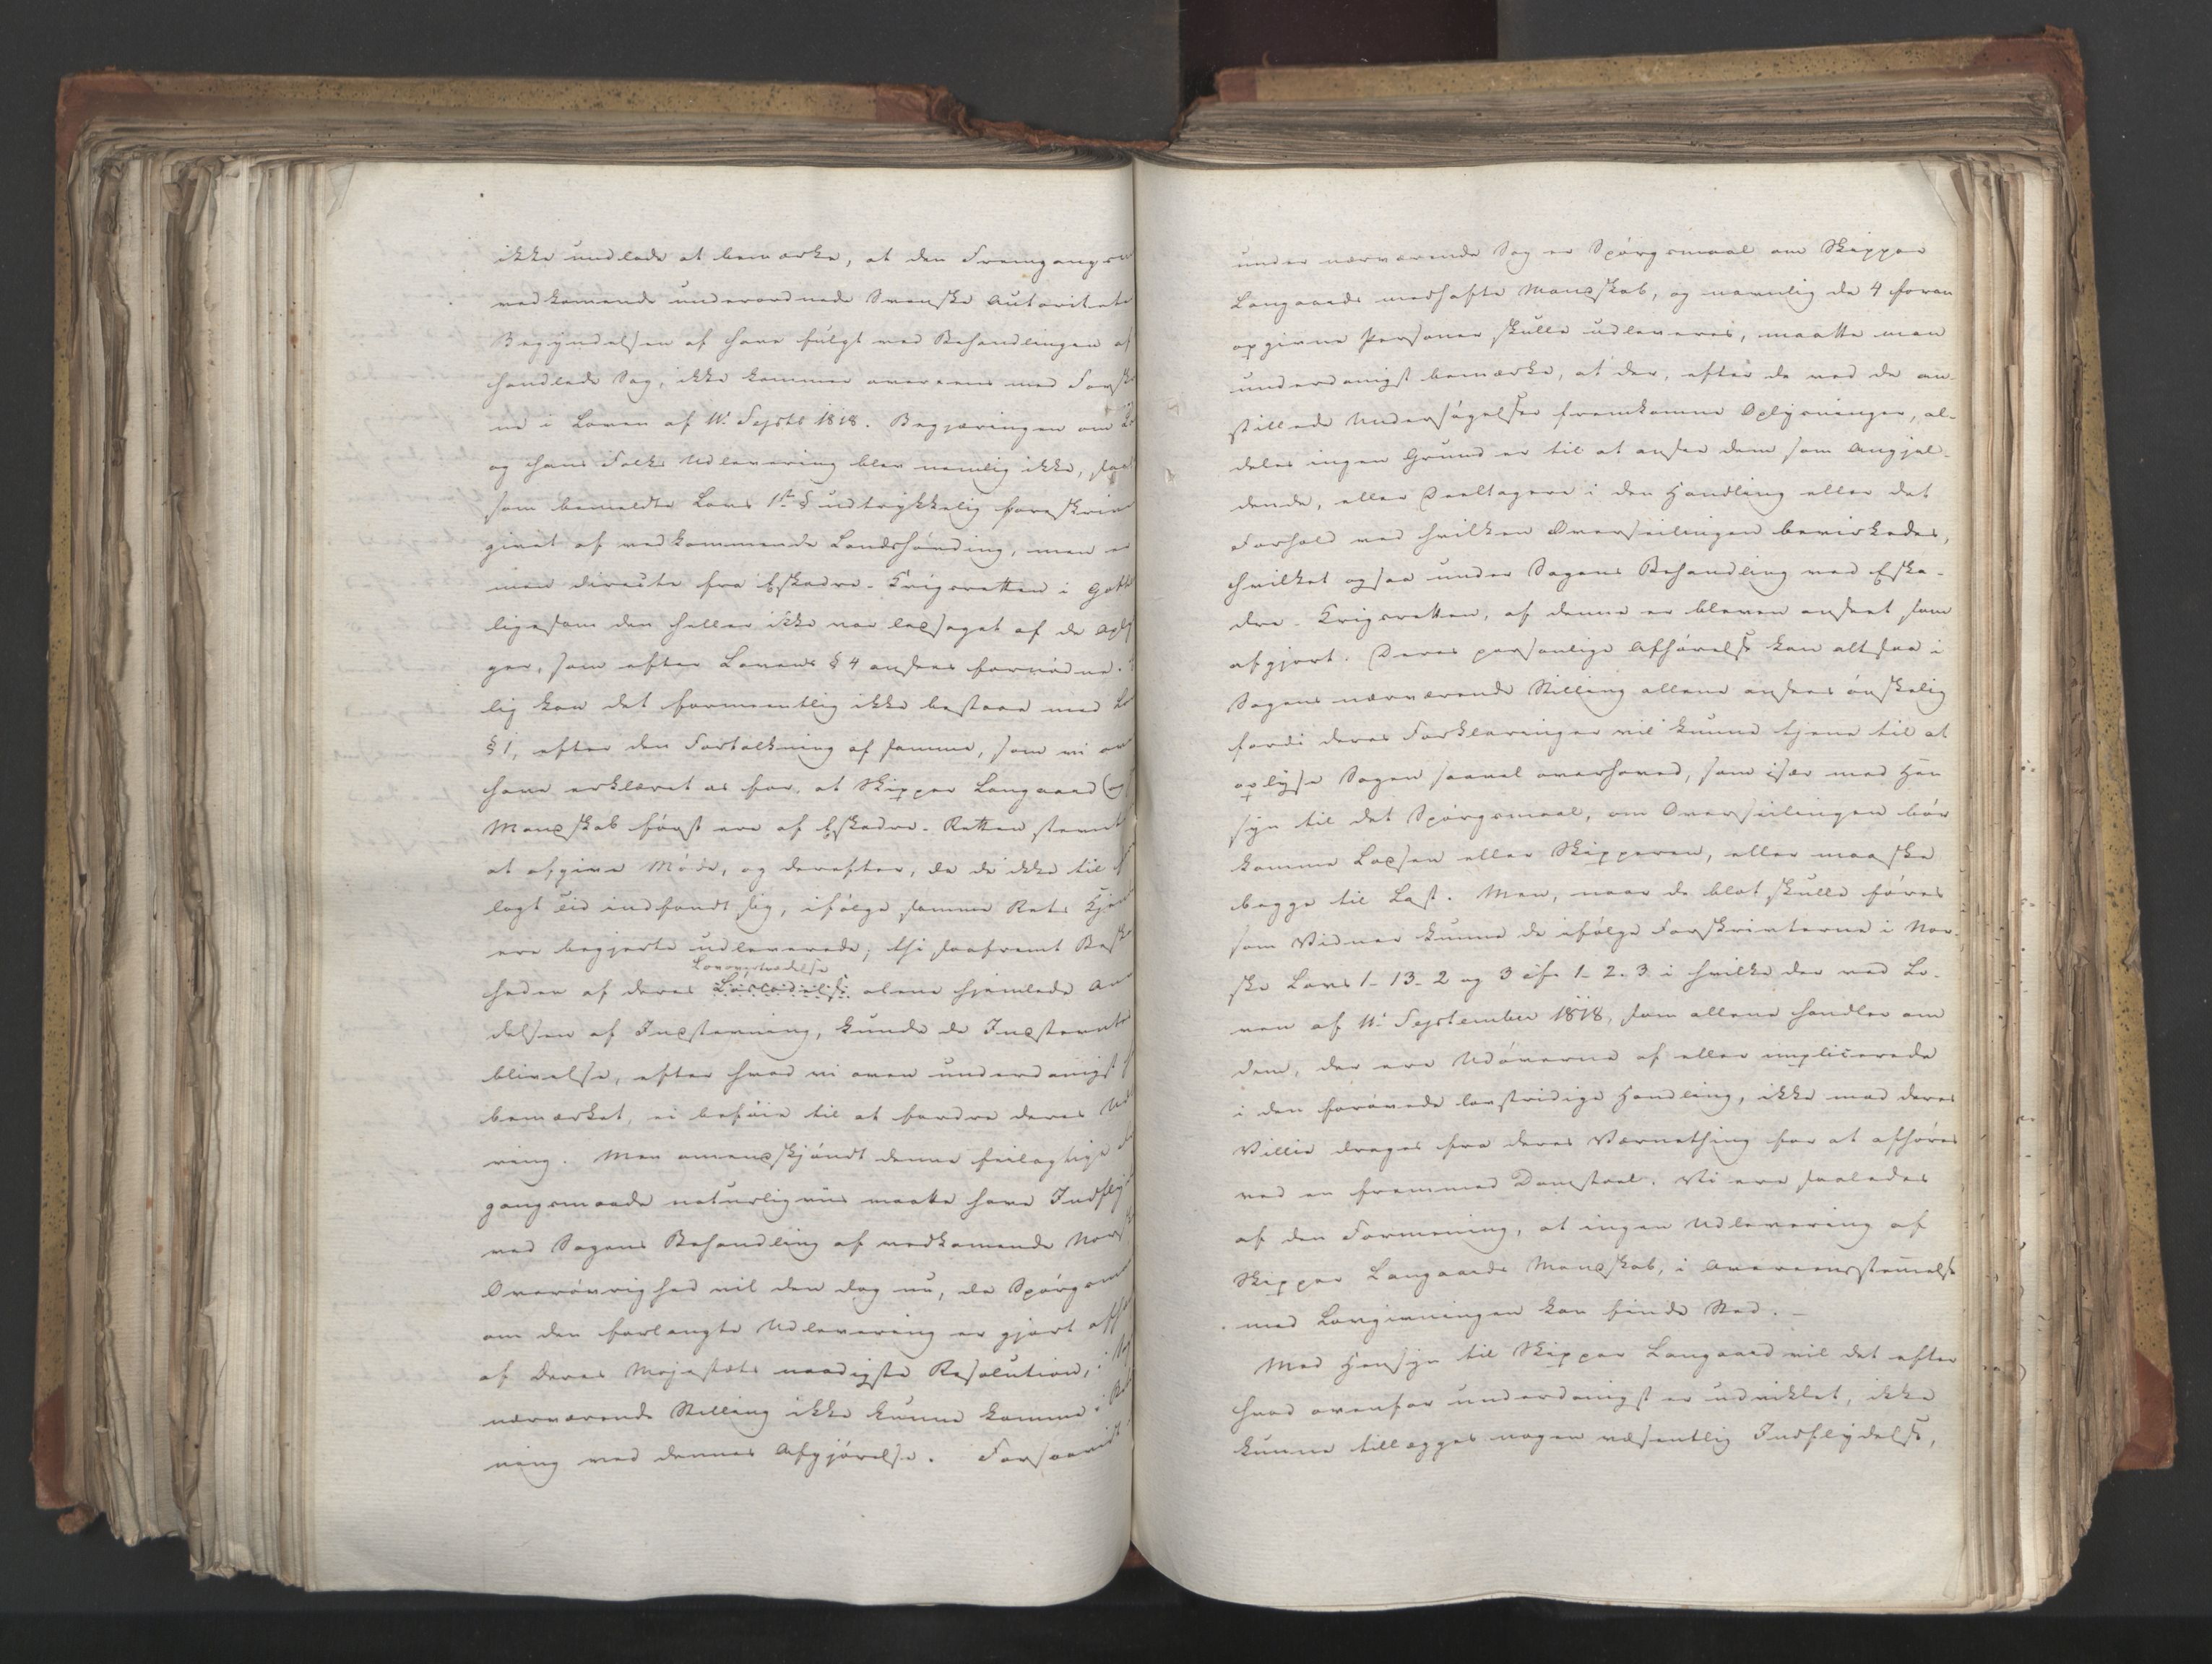 ikke undlade at bemærke, at den Fremgangsm
vedkomende underordnede Svenske Autoritete
Begyndelsen af have fulgt ved Behandlingen af
handlede Sag, ikke kommer overeens med Forskr
ne i Loven af 11te Septbr 1818. Begjæringen om
og hans Folks Udlevering blev nemlig ikke, saa
som bemeldte Lovs 1ste § udtrykkelig foreskriv
givet af vedkommende Landshövding, men
men directe fra Eskadre-Krigsretten i Goth
ligesom den heller ikke var ledsaget af de Oply
ger, som efter Lovens § 4 ansees fornödne.
lig kan det formeentlig ikke bestaae med Lo
§ 1, efter den Fortolkning af samme, som vi ov
have erklæret os for, at Skipper Langaard (og
Mandskab först ere af Eskadre-Retten stevnt
at afgive Möde, og derefter, da de ikke til
lagt Tid indfandt sig, ifölge samme Rets Kjen
ere begjerte udleverede; thi saafremt Besk
Lovovertrædelse
heden af deres alene hjemlede An
delsen af Indstevning, kunde de Indstevnte
blivelse, efter hvad vi oven underdanigst
bemærket, ei beföie til at fordre deres Udl
ring. Men omendskjöndt denne feilagtige
gangsmaade naturligviis maatte have Indfly
ved Sagens Behandling af vedkomende Norsk
Overövrighed vil den dog nu, da Spörgsm
om den forlangte Udlevering er gjort afh
af Deres Majestæts naadigste Resolution, i Sag
nærværende Stilling ikke kunne komme i Be
ning ved dennes Afgjörelse. Forsaavidt
under nærværende Sag er Spörgsmaal om Skipper
Langaards medhafte Mandskab, og navnlig de 4 foran
opgivne Personer skulle udleveres, maatte man
underdanigst bemærke, at der, efter de ved de an-
stillede Undersögelser fremkomne Oplysninger, al-
deles ingen Grund er til at ansee dem som Angjel-
dende, eller Deeltagere i den Handling eller det
Forhold ved hvilken Overseilingen bevirkedes,
hvilket ogsaa under Sagens Behandling ved Eska-
dre-Krigsretten, af denne er bleven anseet som
afgjort. Deres personlige Afhörelse kan altsaa i
Sagens nærværende Stilling allene ansees önskelig
fordi deres Forklaringer vil kunne tjene til at
oplyse Sagen saavel overhoved, som især med Hen
syn til det Spörgsmaal, om Overseilingen bör
komme Lodsen eller Skipperen, eller maaske
begge til Last. Men, naar de blot skulle föres
som Vidner kunne de ifölge Forskrivterne i Nor-
ske Lovs 1-13-2 og 3 cfr 1-2-3 i hvilke der ved Lo-
ven af 11te September 1818, som allene handler om
dem, der ere Udöverne af eller implicerede
i den forövede lovstridige Handling, ikke mod deres
Villie drages fra deres Værnething for at afhöres
ved en fremmed Domstoel. Vi ere saaledes
af den Formening, at ingen Udlevering af
Skipper Langaards Mandskab, i Overeensstemelse
med Lovgivningen kan finde Sted. -
Med Hensyn til Skipper Langaard vil det efter
hvad ovenfor underdanigst er udviklet, ikke
kunne tillægges nogen væsentlig Indflydelse,